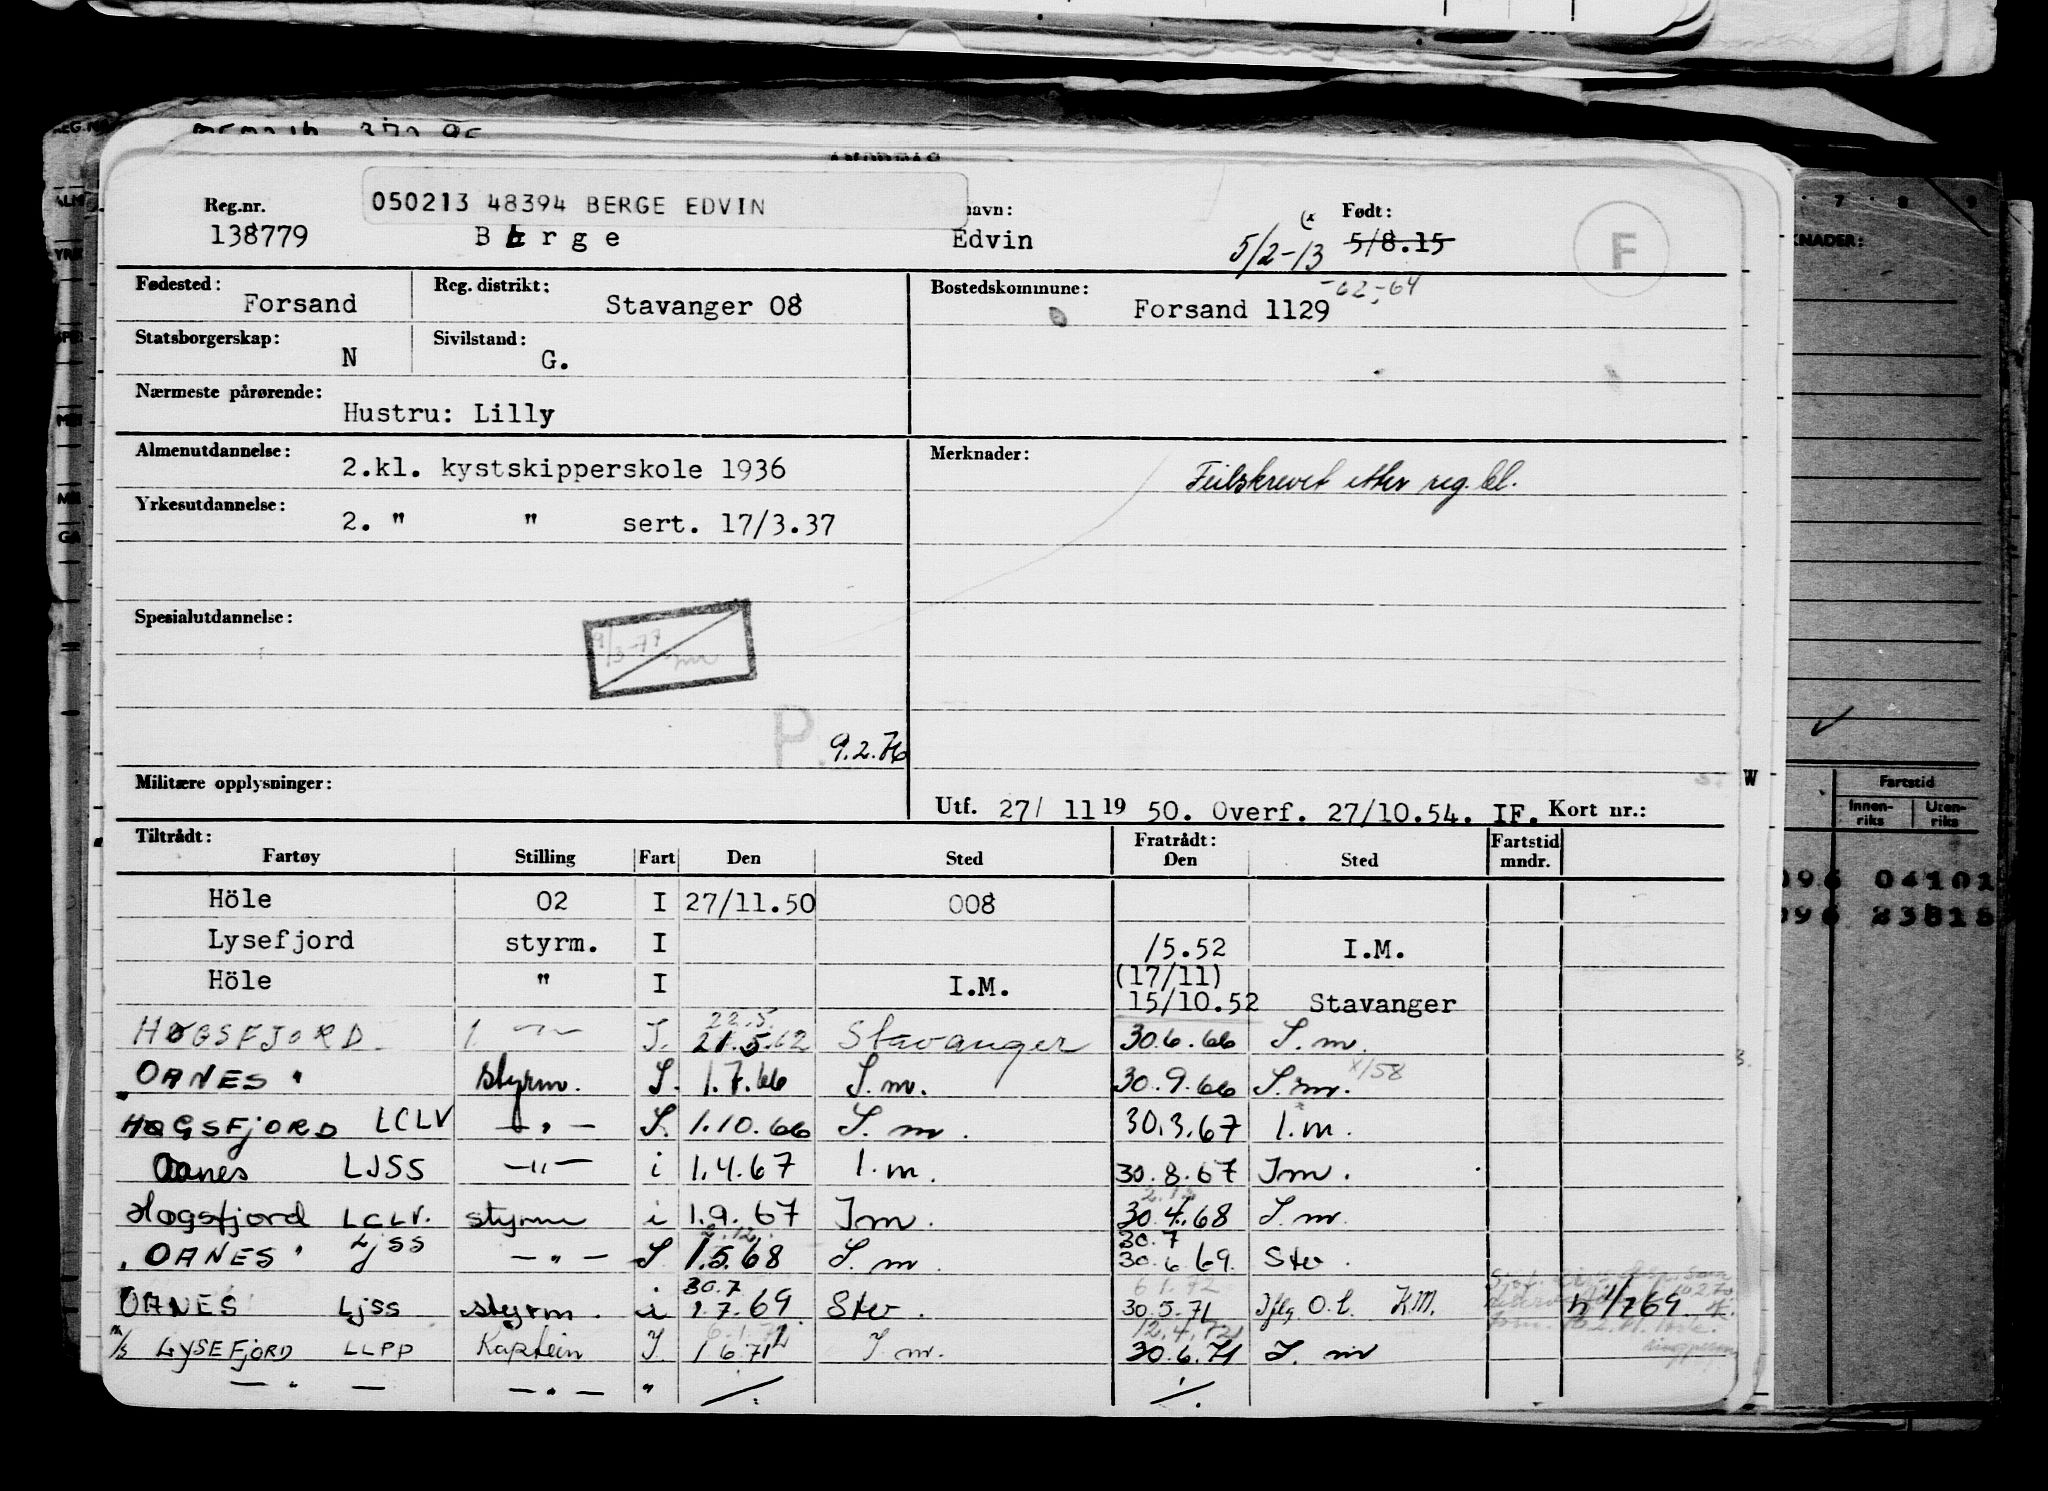 050213 48394 BERGE EDVIN
Reg.nr. navn: Født:
138779 Berge Edvin 5/2-13 (x 5/8.15
F
Fødested: Reg. distrikt: Bostedskommune: -62-64
Forsand Stavanger 08 Forsand 1129
Statsborgerskap: Sivilstand:
N G.
Nærmeste pårørende:
Hustru: Lilly
Almenutdannelse: Merknader:
2.kl. kystskipperskole 1936 Feilskrevet etter reg.bl.
Yrkesutdannelse:
2. " " sert. 17/3.37
Spesialutdannelse:
P. 9.2.76
Militære opplysninger:
Utf. 27/ 11 19 50. Overf. 27/10.54. IF. Kort nr.:
Tiltrådt: Fratrådt: Fartstid
Fartøy Stilling Fart Den Sted Den Sted mndr.
Höle 02 I 27/11.50 008
Lysefjord styrm. I /5.52 I.M.
Höle " I I.M. (17/11)
15/10.52 Stavanger
22.5.
HØGSFJORD 1. -"- I. 21.5.62 Stavanger 30.6.66 I.m.
"OANES" styrm. I. 1.7.66 I.m. 30.9.66 I.m. x/58
HØGSFJORD LCLV -"- I. 1.10.66 I.m. 30.3.67 I.m.
Oanes LJSS -"- i 1.4.67 I.m. 30.8.67 Im.
Høgsfjord LCLV. styrm i 1.9.67 Im. 30.4.68 I.m.
"OANES" LJSS -"- I 1.5.68 I.m. 30.7 30.6.69. Stv.
30.7 6.1.72
OANES LJSS styrm. i 1.7.69 Stv. 30.5.71 O.t. K.M.
12.4.72
M/S LYSEFJORD LLPP Kaptein I 1.6.71 I.m. 30.6.71 I.m
-"- -"- " ./. ./.
7 8 9
KNADER:
W
Fartstid
Innen-
riks
Uten-
riks
096 04101
096 23818